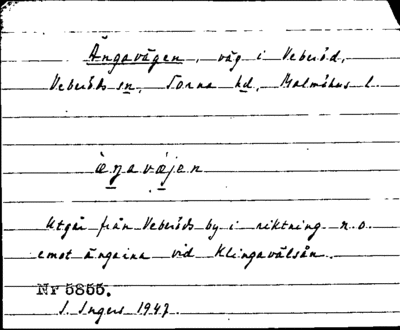 Ängavägen, väg i Veberöd,
Veberöds sn, Torna hd, Malmöhus l.
àŋavæ̀jen
Utgår från Veberöds by i riktning n.o.
emot ängarna vid Klingavälsån.
Nr 5855.
I. Ingers 1947.